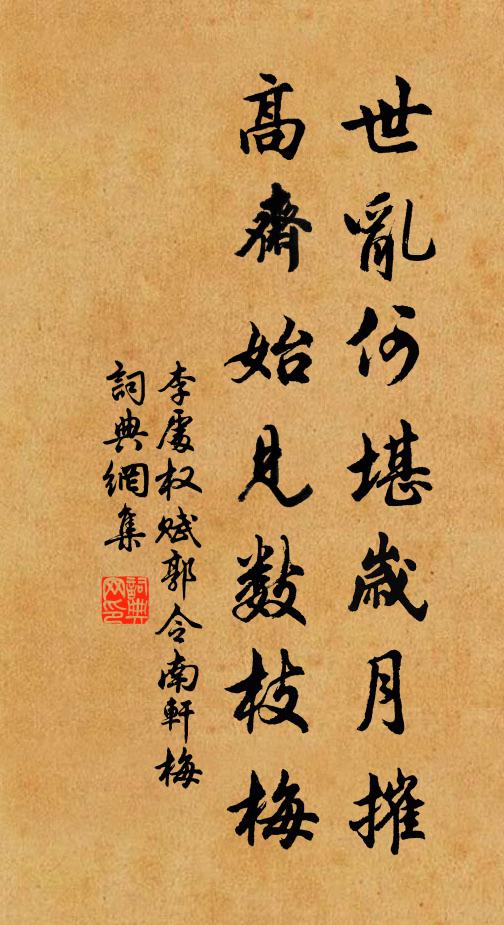 世亂何堪歲月摧
高齋始見數枝梅
李處权赋郭令南軒梅
詞典網集
詞典
网印